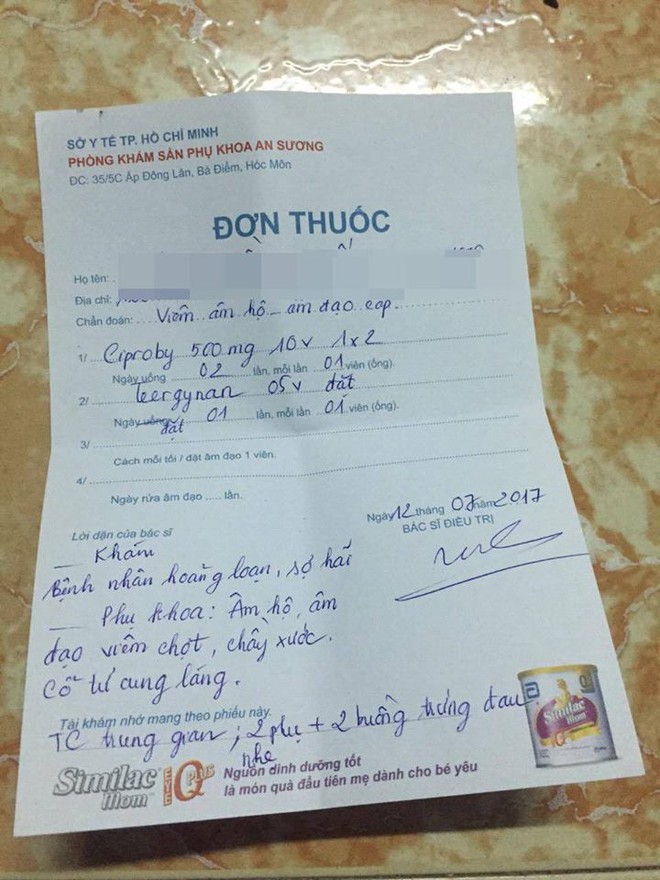 SỞ Y TẾ TP. HỒ CHÍ MINH
PHÒNG KHÁM SẢN PHỤ KHOA AN SƯƠNG
ĐC: 35/5C Ấp Đông Lân, Bà Điểm, Hóc Môn
ĐƠN THUỐC
Họ tên:
Địa chỉ:
Chẩn đoán: Viêm âm hộ - âm đạo cấp
1/ Ciproby 500mg 10v 1x2
Ngày uống 02 lần, mỗi lần 01 viên (ống).
2/ teergynan 05v đặt
Ngày uống đặt 01 lần, mỗi lần 01 viên (ống).
3/
Cách mỗi tối / đặt âm đạo 1 viên.
4/
Ngày rửa âm đạo ..... lần.
Ngày 12 tháng 07 năm 2017
BÁC SĨ ĐIỀU TRỊ
Lời dặn của bác sĩ
— Khám
Bệnh nhân hoảng loạn, sợ hãi
— Phụ khoa: Âm hộ, âm
đạo viêm chợt, chầy xước.
Cổ tử cung láng.
Tái khám nhớ mang theo phiếu này.
TC trung gian; 2 phụ + 2 buồng trứng đau
nhẹ
Similac Mom
IQ PLUS
Nguồn dinh dưỡng tốt
là món quà đầu tiên mẹ dành cho bé yêu
Similac
Mom
IQ